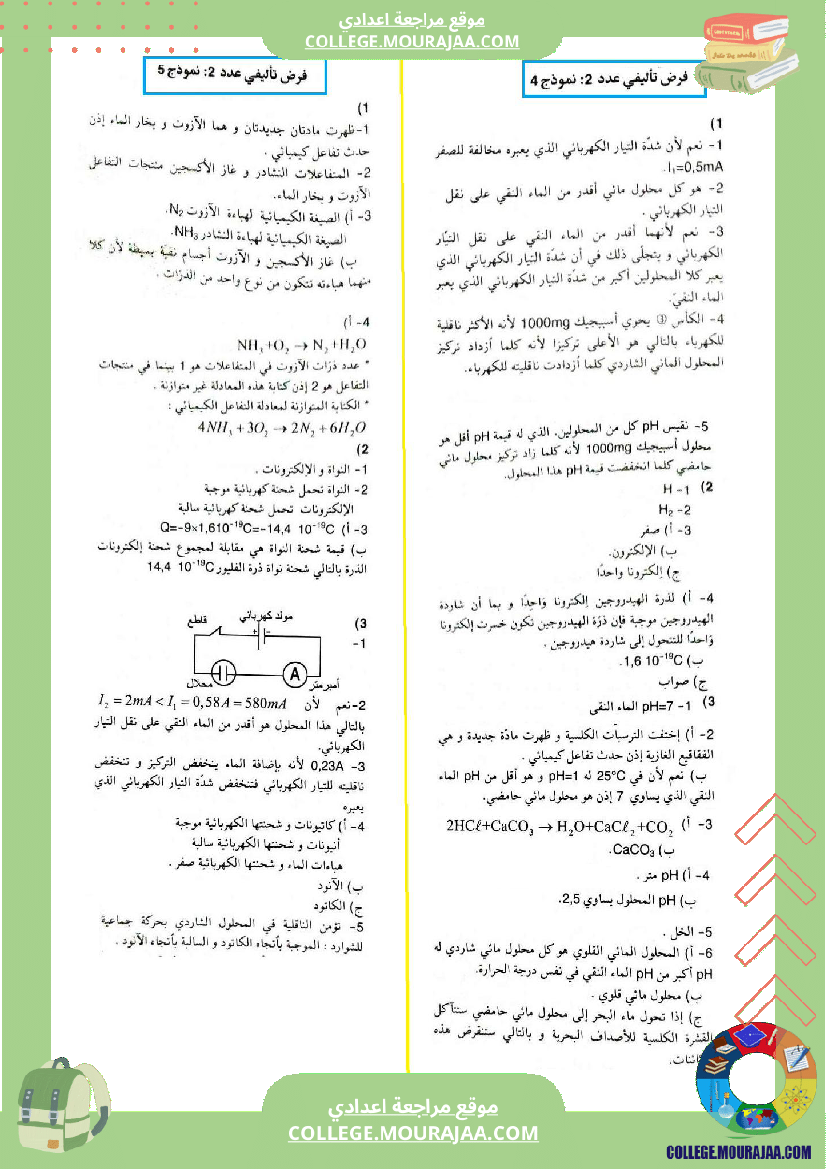 موقع مراجعة اعدادي
COLLEGE.MOURAJAA.COM
فرض تأليفي عدد 2: نموذج 4
1)
1- نعم لأن شدّة التيار الكهربائي الذي يعبره مخالفة للصفر
I₁=0,5mA.
2- هو كل محلول مائي أقدر من الماء النقي على نقل
التيار الكهربائي .
3- نعم لأنهما أقدر من الماء النقي على نقل التيّار
الكهربائي و يتجلّى ذلك في أن شدّة التيار الكهربائي الذي
يعبر كلا المحلولين أكبر من شدّة التيار الكهربائي الذي يعبر
الماء النقيّ.
4- الكأس ③ يحوي أسبيجيك 1000mg لأنه الأكثر ناقلية
للكهرباء بالتالي هو الأعلى تركيزا لأنه كلما أزداد تركيز
المحلول المائي الشاردي كلما أزدادت ناقليته للكهرباء.
5- نقيس pH كل من المحلولين. الذي له قيمة pH أقل هو
محلول أسبيجيك 1000mg لأنه كلما زاد تركيز محلول مائي
حامضي كلما انخفضت قيمة pH هذا المحلول.
2) 1- H
2- H₂
3- أ) صفر
ب) الإلكترون.
ج) إلكترونا واحدًا
4- أ) لذرة الهيدروجين إلكترونا وَاحدًا و بما أن شاردة
الهيدروجين موجبة فإن ذرّة الهيدروجين تكون خسرت إلكترونا
وَاحدًا للتتحول إلى شاردة هيدروجين .
ب) 1,6 10⁻¹⁹C.
ج) صواب
3) 1- pH=7 الماء النقى
2- أ) إختفت الترسبّات الكلسية و ظهرت مادّة جديدة و هي
الفقاقيع الغازية إذن حدث تفاعل كيميائي .
ب) نعم لأن في 25°C له pH=1 و هو أقل من pH الماء
النقي الذي يساوي 7 إذن هو محلول مائي حامضي.
3- أ) 2HCℓ+CaCO₃ → H₂O+CaCℓ₂+CO₂
ب) CaCO₃.
4- أ) pH متر .
ب) pH المحلول يساوي 2,5.
5- الخل .
6- أ) المحلول المائي القلوي هو كل محلول مائي شاردي له
pH أكبر من pH الماء النقي في نفس درجة الحرارة.
ب) محلول مائي قلوي .
ج) إذا تحول ماء البحر إلى محلول مائي حامضي ستتآكل
القشرة الكلسية للأصداف البحرية و بالتالي ستنقرض هذه
فرض تأليفي عدد 2: نموذج 5
1)
1-ظهرت مادتان جديدتان و هما الآزوت و بخار الماء إذن
حدث تفاعل كيميائي .
2- المتفاعلات النشادر و غاز الأكسجين منتجات التفاعل
الآزوت و بخار الماء.
3- أ) الصيغة الكيميائية لهباءة الآزوت N₂.
الصيغة الكيميائية لهباءة النشادر NH₃.
ب) غاز الأكسجين و الآزوت أجسام نقيّة بسيطة لأن كلا
منهما هباءته تتكون من نوع واحد من الذرّات .
4- أ)
NH₃+O₂ → N₂+H₂O
* عدد ذرّات الآزوت في المتفاعلات هو 1 بينما في منتجات
التفاعل هو 2 إذن كتابة هذه المعادلة غير متوازنة .
* الكتابة المتوازنة لمعادلة التفاعل الكيميائي :
4NH₃+3O₂ → 2N₂+6H₂O
2)
1- النواة و الإلكترونات .
2- النواة تحمل شحنة كهربائية موجبة
الإلكترونات تحمل شحنة كهربائية سالبة
3- أ) Q=−9×1,610⁻¹⁹C=−14,4 10⁻¹⁹C
ب) قيمة شحنة النواة هي مقابلة لمجموع شحنة إلكترونات
الذرة بالتالي شحنة نواة ذرة الفليور 14,4 10⁻¹⁹C
3)
1-
مولد كهربائي
قاطع
+ -
A
أمبرمتر
محلال
2-نعم لأن I₂ = 2mA < I₁ = 0,58A = 580mA
بالتالي هذا المحلول هو أقدر من الماء النقي على نقل التيار
الكهربائي.
3- 0,23A لأنه بإضافة الماء ينخفض التركيز و تنخفض
ناقليته للتيار الكهربائي فتنخفض شدّة التيار الكهربائي الذي
يعبره
4- أ) كاتيونات و شحنتها الكهربائية موجبة
أنيونات و شحنتها الكهربائية سالبة
هباءات الماء و شحنتها الكهربائية صفر .
ب) الآنود
ج) الكاتود
5- تؤمن الناقلية في المحلول الشاردي بحركة جماعية
للشوارد : الموجبة بأتجاه الكاتود و السالبة بأتجاه الآنود .
موقع مراجعة اعدادي
COLLEGE.MOURAJAA.COM
COLLEGE.MOURAJAA.COM